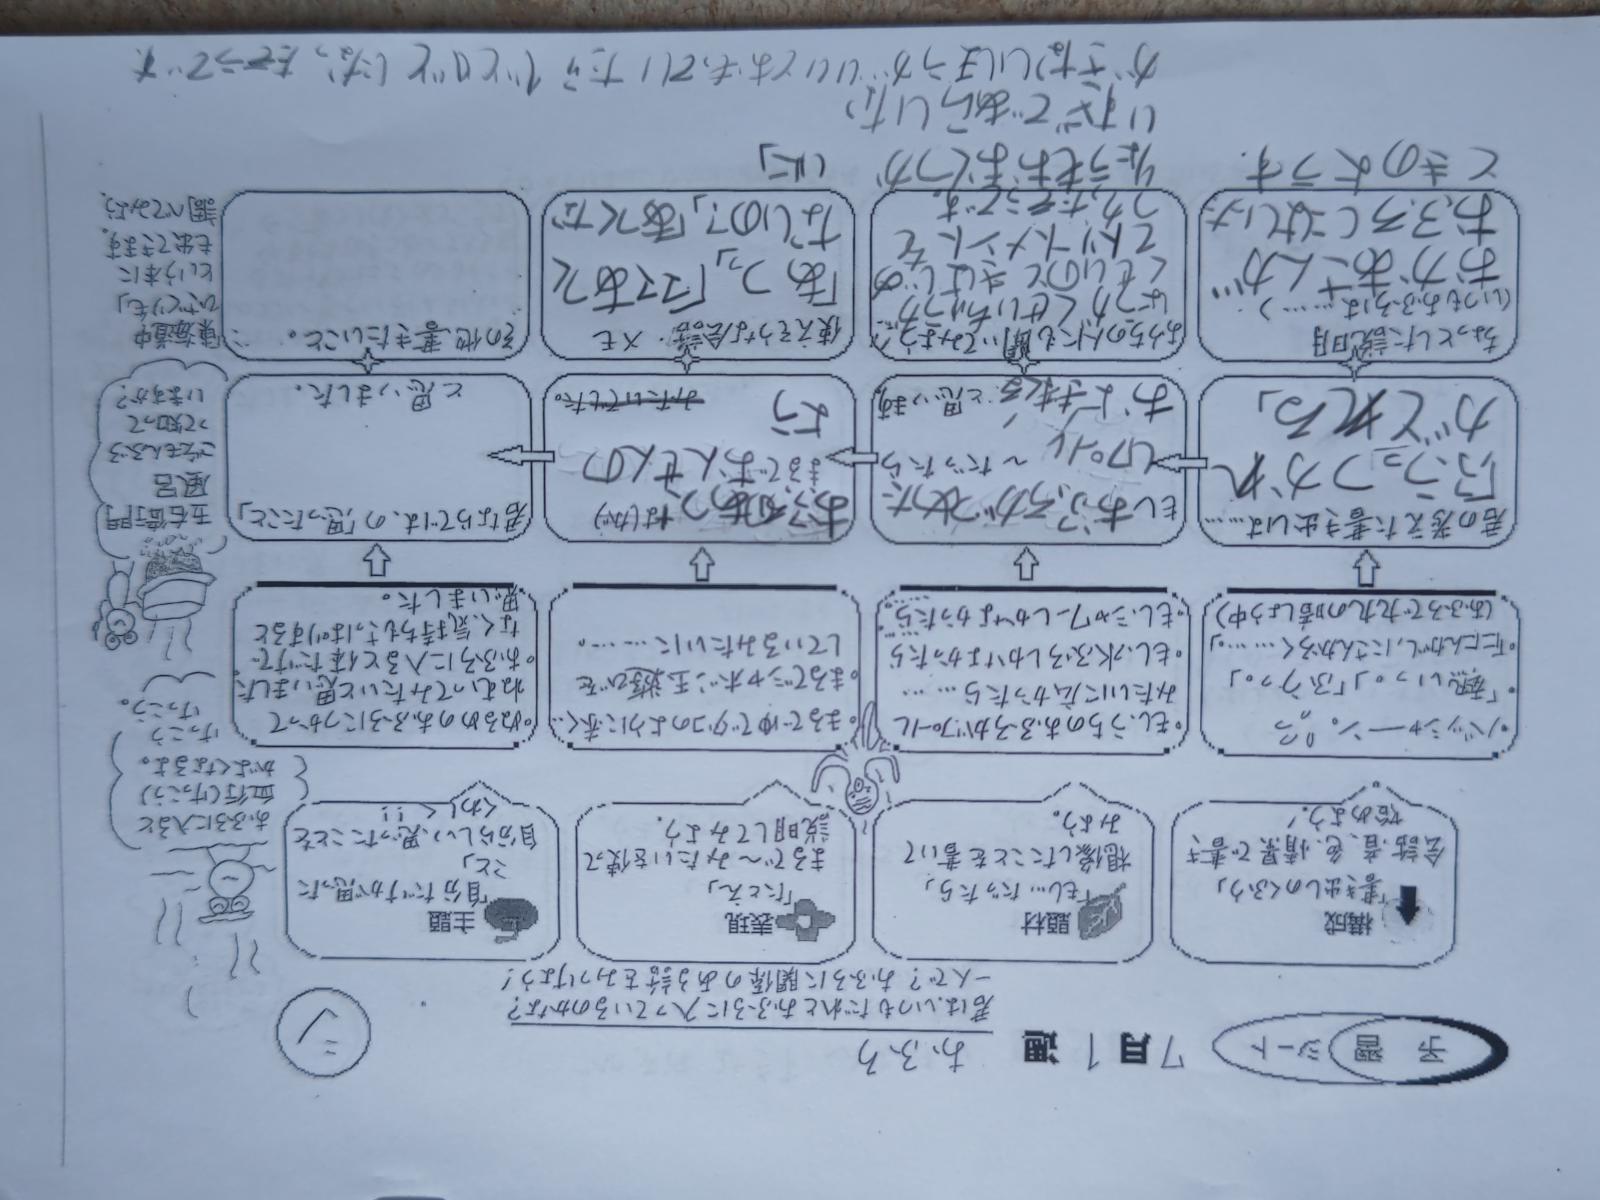 予習シート
7月1週
おふろ
シ
君はいつもだれとおふろに入っているのかな?
一人で?おふろに関係のある話をみつけよう!
構成
「書き出しのくふう」
会話、音、色、情景で書き
始めよう!
題材
「もし…だったら」
想像したことを書いて
みよう。
表現
「たとえ」
まるで~みたいを使って
説明してみよう。
主題
「自分だけが思った
こと」
自分らしい、思ったことを
くわしく!!
おふろに入ると
血行(けっこう)
がよくなるよ。
けっこう
けっこう。
・バッシャーン。
・「熱いっ。」「ふうっ。」
・「ににんがしにさんがろく……」
(おふろで九九の暗しょう中)
・もし、うちのおふろがプール
みたいに広かったら……
・もし、水ぶろしかなかったら
・もし、シャワーしかなかったら
・まるでゆでダコのように赤く…
・まるでシャボン玉遊びを
しているみたいに……
ぬるめのおふろにつかって
ねむってみたいと思いました
・おふろに入ると体だけで
なく、気持ちもさっぱりすると
思いました。
君の考えた書き出しは……
「ふうつかれ
がとれる」
もし
おふろがつめた
~だったら
と思います。
(なにが)
おふろ
まるで
おんせんの
よう
みたいでした。
君ならではの「思ったこと」
と思いました。
五右衛門
風呂
ごえもんぶろ
って知って
いますか?
ちょっとした説明
(いつもおふろは……)
おかあさんが
おふろにはいった
ときのようす
おうちの人にも聞いてみよう
トリートメントを
使えそうな会話・メモ
「あつっ」
その他書きたいこと。
東海道中
ひざくり毛」
という本に
も出てきます。
調べてみよう。